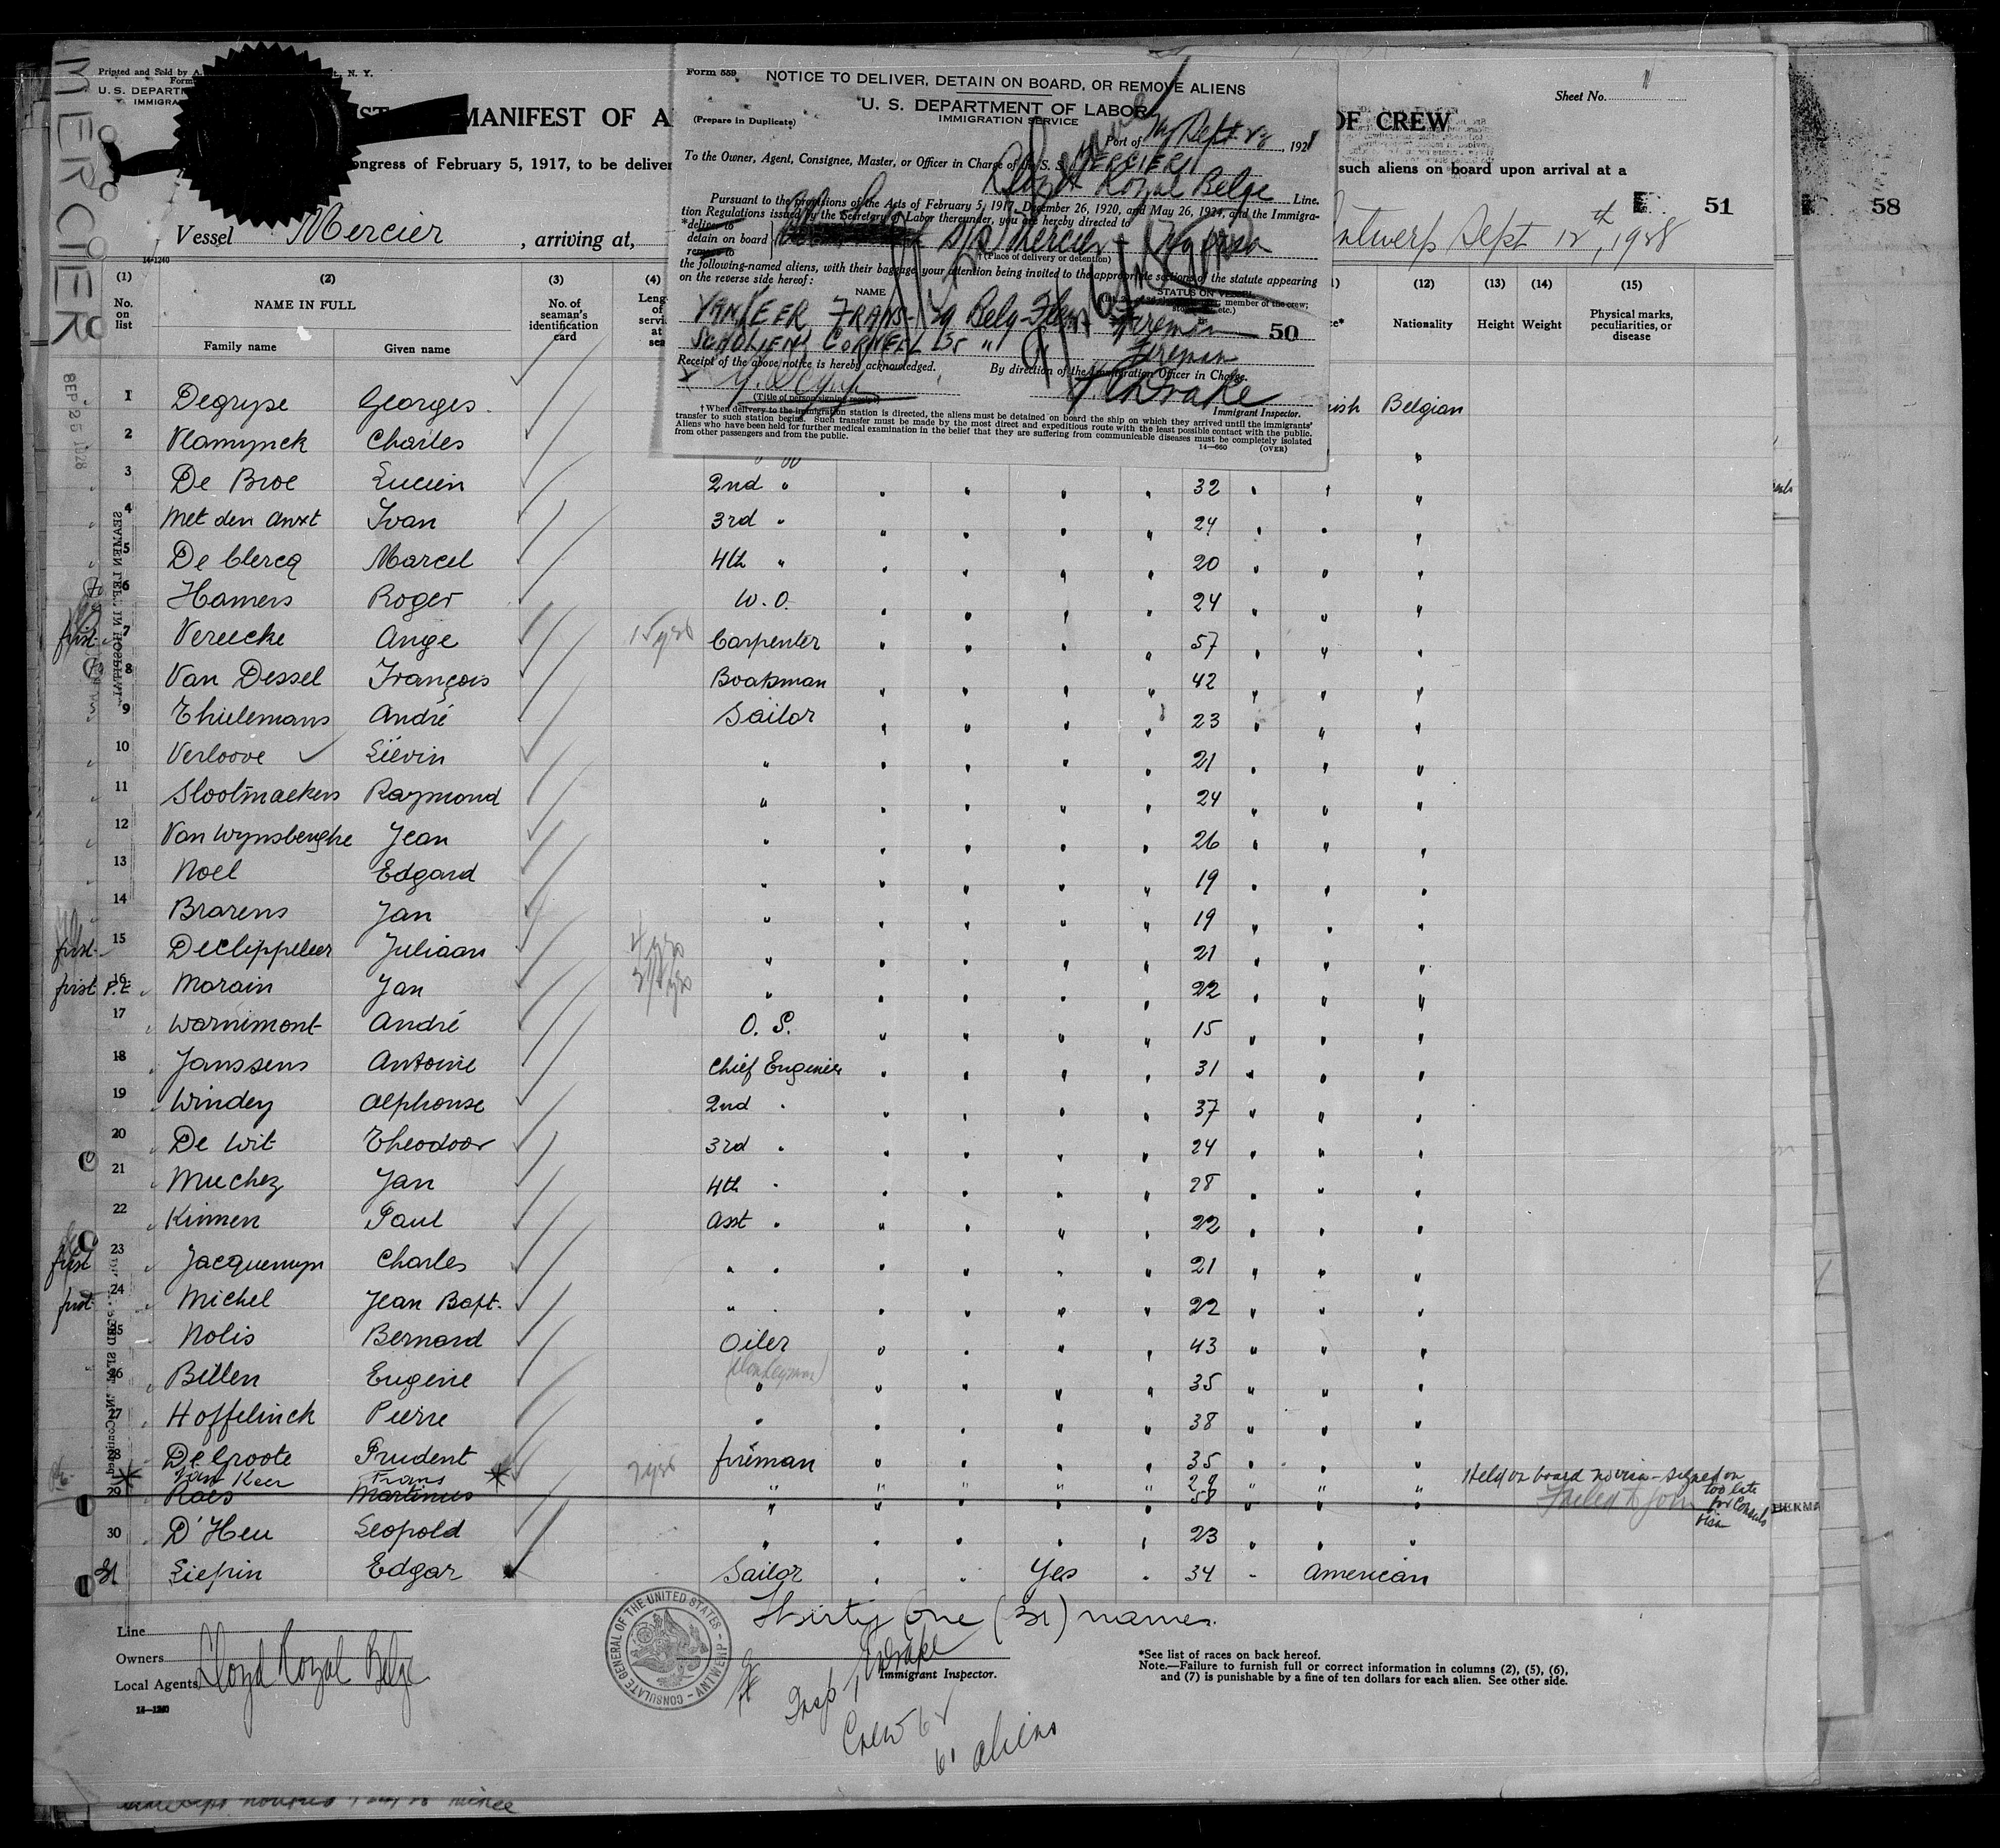 MERCIER
SEP 25 1928
Printed and Sold by A. N. Y.
Form
U. S. DEPARTM
IMMIGRA
MANIFEST OF A
OF CREW
Sheet No.
ongress of February 5, 1917, to be deliver
such aliens on board upon arrival at a
Vessel Mercier, arriving at,
ntwerp Sept 12th, 1928
51
58
14-1240
Form 559
NOTICE TO DELIVER, DETAIN ON BOARD, OR REMOVE ALIENS
U. S. DEPARTMENT OF LABOR
(Prepare in Duplicate)
IMMIGRATION SERVICE
Port of Ny Sept 1928
To the Owner, Agent, Consignee, Master, or Officer in Charge of the S. S. MERCIER
Lloyd Royal Belge Line.
Pursuant to the provisions of the Acts of February 5, 1917, December 26, 1920, and May 26, 1924, and the Immigra-
tion Regulations issued by the Secretary of Labor thereunder, you are hereby directed to
*deliver to
detain on board S/S Mercier - No visa
remove to
†(Place of delivery or detention)
the following-named aliens, with their baggage, your attention being invited to the appropriate sections of the statute appearing
on the reverse side hereof:
NAME
STATUS ON VESSEL
member of the crew;
VAN KEER, FRANS 29 Belg-Flem Fireman
50
SCHOLIENS CORNEEL 35 " " Fireman
Receipt of the above notice is hereby acknowledged.
By direction of the Immigration Officer in Charge.
Drake
(Title of person signing receipt)
Immigrant Inspector.
† When delivery to the immigration station is directed, the aliens must be detained on board the ship on which they arrived until the immigrants'
transfer to such station begins. Such transfer must be made by the most direct and expeditious route with the least possible contact with the public.
Aliens who have been held for further medical examination in the belief that they are suffering from communicable diseases must be completely isolated
from other passengers and from the public.
14—660 (OVER)
(1) (2) (3) (4) (12) (13) (14) (15)
No. on list
NAME IN FULL
Family name Given name
No. of seaman's identification card
Nationality Height Weight Physical marks, peculiarities, or disease
1 Degryse Georges Belgian
2 Vlamynck Charles "
3 De Broe Lucien 2nd " " " " " 32 " " "
4 Met den Anxt Ivan 3rd " " " " " 24 " " "
5 De Clercq Marcel 4th " " " " " 20 " " "
6 Hamers Roger W. O. " " " " 24 " " "
first 7 Vereecke Ange 15 yrs Carpenter " " " " 57 " " "
8 Van Dessel François Boatsman " " " " 42 " " "
9 Thielemans André Sailor " " " " 23 " " "
10 Verloove Liévin " " " " " 21 " " "
11 Slootmaekers Raymond " " " " " 24 " " "
12 Van Wynsberghe Jean " " " " " 26 " " "
13 Noel Edgard " " " " " 19 " " "
14 Brarens Jan " " " " " 19 " " "
first 15 Declippeleer Juliaan 4 yrs " " " " " 21 " " "
first P.E. 16 Morain Jan " " " " " 22 " " "
17 Warnimont André O. S. " " " " 15 " " "
18 Janssens Antoine Chief Engineer " " " " 31 " " "
19 Windey Alphonse 2nd " " " " " 37 " " "
20 De Wit Theodoor 3rd " " " " " 24 " " "
21 Muchez Jan 4th " " " " " 28 " " "
22 Kinnen Paul Asst " " " " " 22 " " "
first 23 Jacquemyn Charles " " " " " " 21 " " "
first 24 Michel Jean Bapt. " " " " " " 22 " " "
25 Nolis Bernard Oiler " " " " 43 " " "
(Donkeyman)
26 Billen Eugène " " " " " 35 " " "
27 Hoffelinck Pierre " " " " " 38 " " "
28 De Groote Prudent fireman " " " " 35 " " "
* Van Keer Frans * 2 yrs " " " " " 29 " " " Held on board no visa - signed on too late for Consuls visa
29 Raes Martinus " " " " " 58 " " " Failed to join
30 D'Heu Leopold " " " " " 23 " " "
31 Liepin Edgar Sailor " " Yes " 34 " American
Thirty One (31) names.
Line
Owners
Local Agents Lloyd Royal Belge
14—1240
CONSULATE GENERAL OF THE UNITED STATES - ANTWERP
Drake
Immigrant Inspector.
Insp
Crew 62
61 aliens
*See list of races on back hereof.
Note.—Failure to furnish full or correct information in columns (2), (5), (6),
and (7) is punishable by a fine of ten dollars for each alien. See other side.